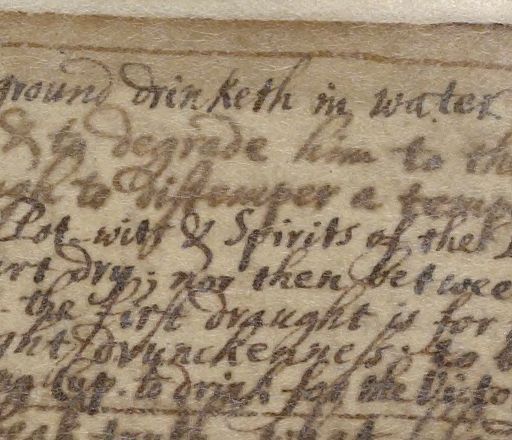 ground drinketh in water
& to degrade him to the
to distemper a
Pot-wits & Spirits of the
dry; nor then betwee
the first draught is for
ght drunckenness; to
up. to drink for the Victo